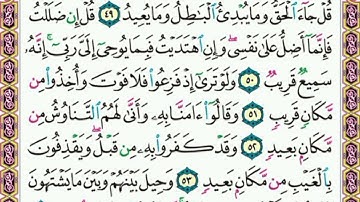 قُلْ جَآءَ ٱلْحَقُّ وَمَا يُبْدِئُ ٱلْبَٰطِلُ وَمَا يُعِيدُ ٤٩ قُلْ إِن ضَلَلْتُ
فَإِنَّمَآ أَضِلُّ عَلَىٰ نَفْسِى وَإِنِ ٱهْتَدَيْتُ فَبِمَا يُوحِىٓ إِلَىَّ رَبِّىٓ إِنَّهُۥ
سَمِيعٌ قَرِيبٌ ٥٠ وَلَوْ تَرَىٰٓ إِذْ فَزِعُوا۟ فَلَا فَوْتَ وَأُخِذُوا۟ مِن
مَّكَانٍ قَرِيبٍ ٥١ وَقَالُوٓا۟ ءَامَنَّا بِهِۦ وَأَنَّىٰ لَهُمُ ٱلتَّنَاوُشُ مِن
مَّكَانٍۭ بَعِيدٍ ٥٢ وَقَدْ كَفَرُوا۟ بِهِۦ مِن قَبْلُ وَيَقْذِفُونَ
بِٱلْغَيْبِ مِن مَّكَانٍۭ بَعِيدٍ ٥٣ وَحِيلَ بَيْنَهُمْ وَبَيْنَ مَا يَشْتَهُونَ